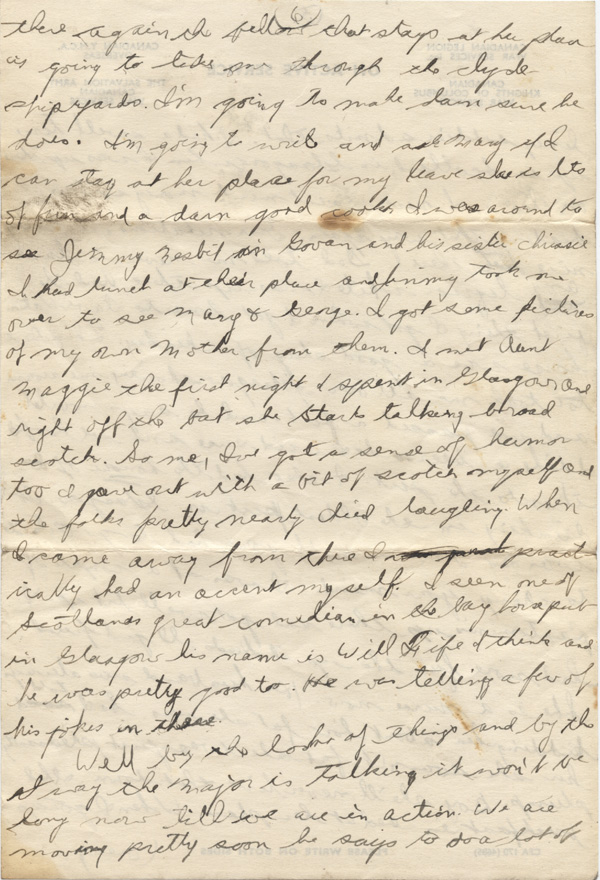 6
there again the fellow that stays at her place
is going to take me through the Clyde
shipyards. I'm going to make darn sure he
does. I'm going to write and ask Mary if I
can stay at her place for my leave she is lots
of fun and a darn good cook. I was around to
see Jimmy Nesbit in Govan and his sister Chrissie
I had lunch at their place and Jimmy took me
over to see Mary & George. I got some pictures
of my own Mother from them. I met Aunt
Maggie the first night I spent in Glasgow and
right off the bat she starts talking broad
scotch. So me, I've got a sense of humor
too I gave out with a bit of scotch myself and
the folks pretty nearly died laughing. When
I came away from there I pract-
ically had an accent myself. I seen one of
Scotlands great comedian in the
in Glasgow his name is Will Fife I think and
he was pretty good too. He was telling a few of
his jokes in there.
Well by the looks of things and by the
way the Major is talking it won't be
long now till we are in action. We are
moving pretty soon he says to do a lot of